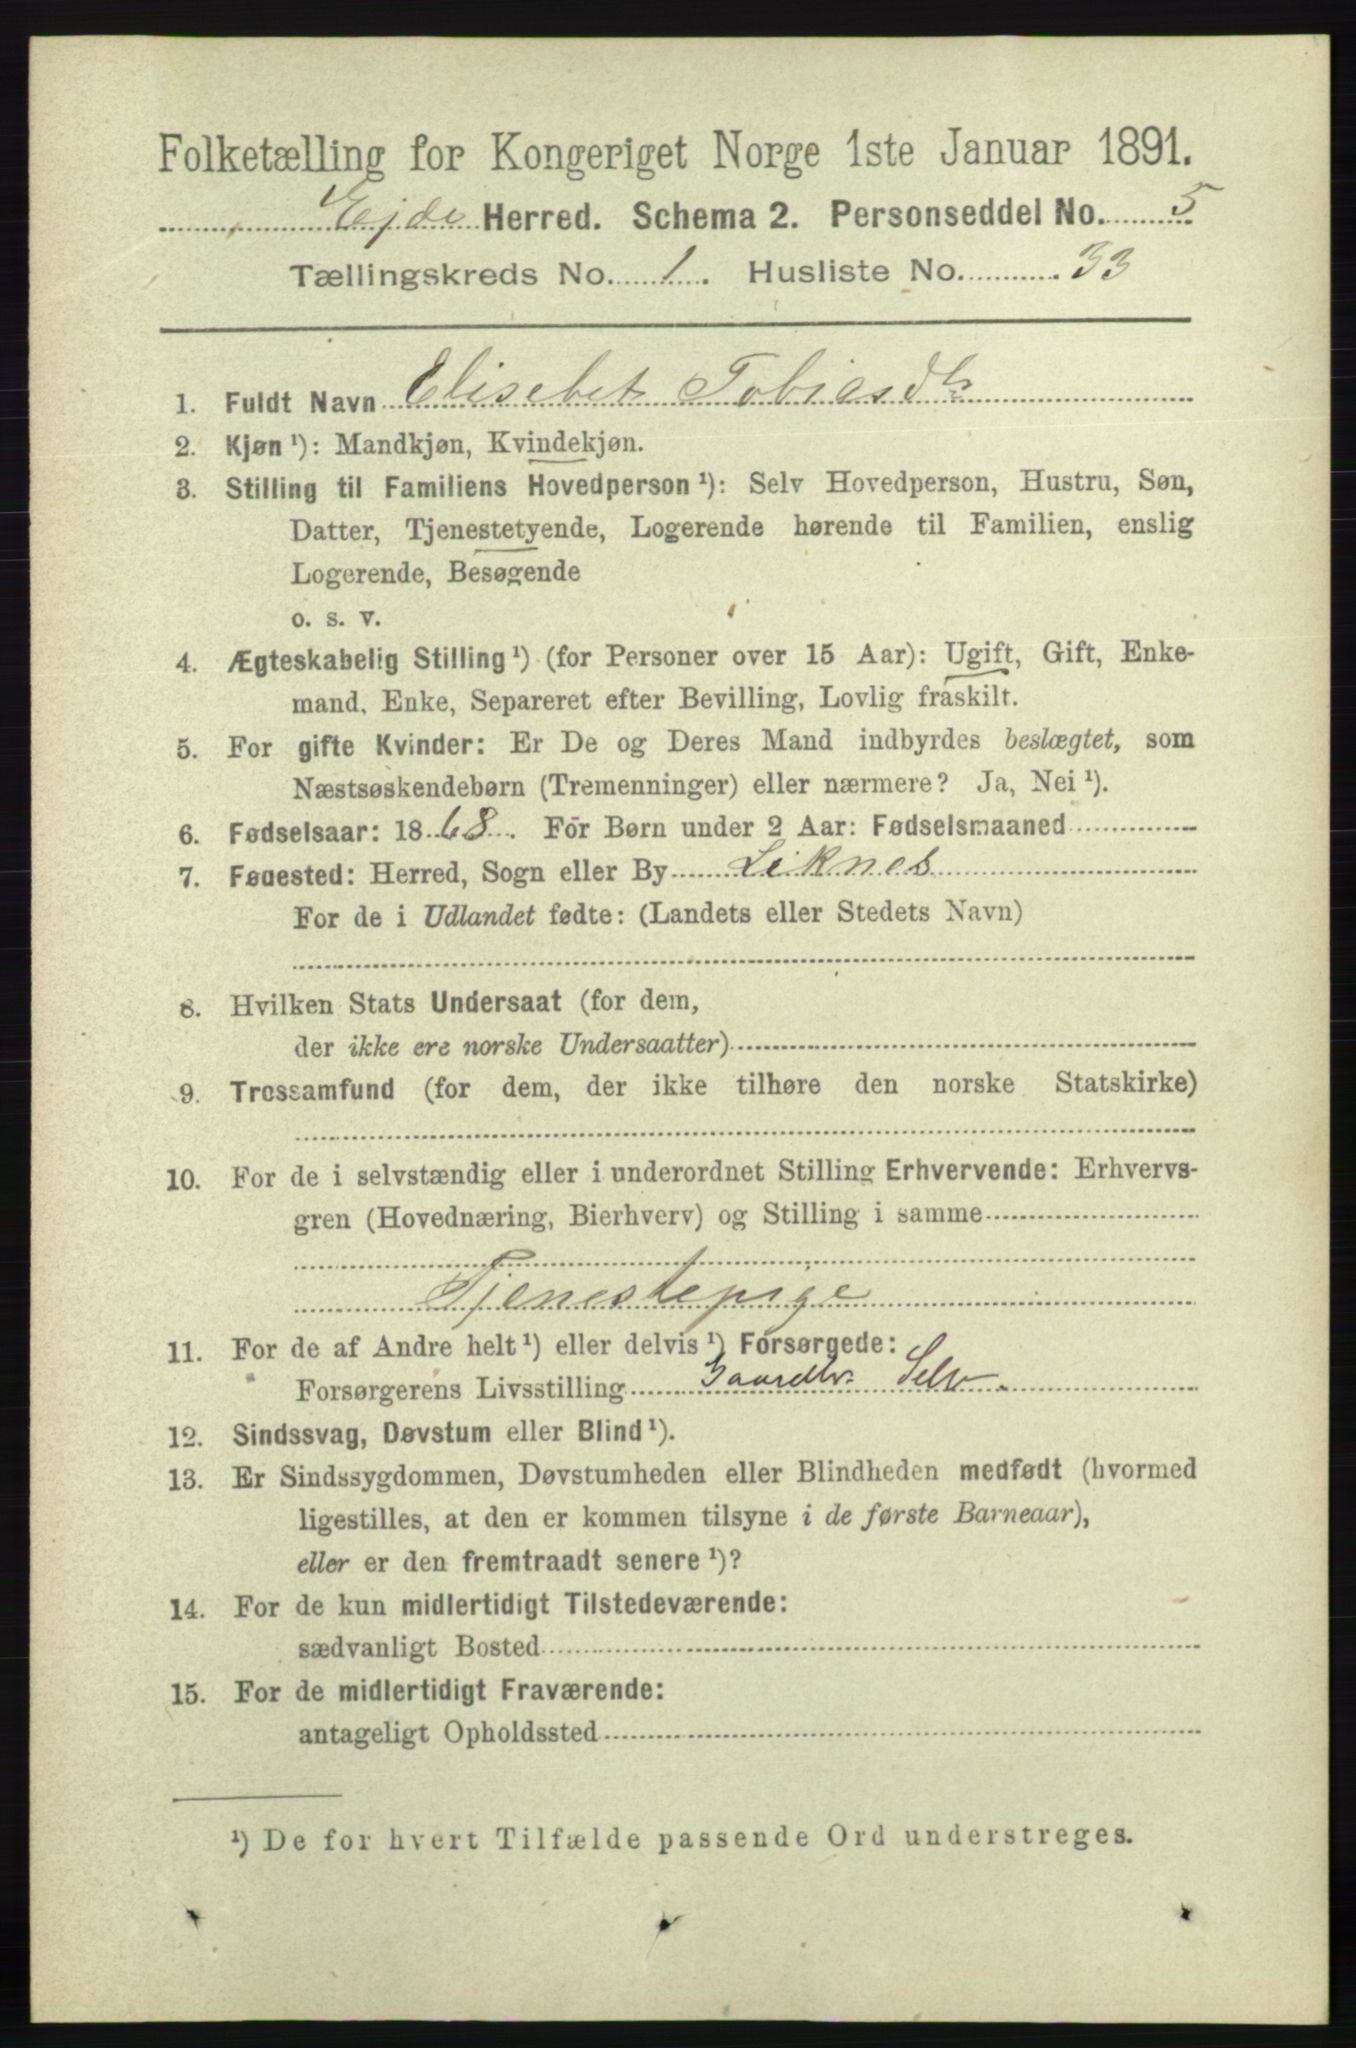 Folketælling for Kongeriget Norge 1ste Januar 1891.
Ejde Herred. Schema 2. Personseddel No. 5
Tællingskreds No. 1. Husliste No. 33
1. Fuldt Navn Elisebet Tobiasdtr
2. Kjøn ¹): Mandkjøn, Kvindekjøn.
3. Stilling til Familiens Hovedperson ¹): Selv Hovedperson, Hustru, Søn,
Datter, Tjenestetyende, Logerende hørende til Familien, enslig
Logerende, Besøgende
o. s. v.
4. Ægteskabelig Stilling ¹) (for Personer over 15 Aar): Ugift, Gift, Enke-
mand, Enke, Separeret efter Bevilling, Lovlig fraskilt.
5. For gifte Kvinder: Er De og Deres Mand indbyrdes beslægtet, som
Næstsøskendebørn (Tremenninger) eller nærmere? Ja, Nei ¹).
6. Fødselsaar: 1868. For Børn under 2 Aar: Fødselsmaaned
7. Føaested: Herred, Sogn eller By Liknes
For de i Udlandet fødte: (Landets eller Stedets Navn)
8. Hvilken Stats Undersaat (for dem,
der ikke ere norske Undersaatter)
9. Trossamfund (for dem, der ikke tilhøre den norske Statskirke)
10. For de i selvstændig eller i underordnet Stilling Erhvervende: Erhvervs-
gren (Hovednæring, Bierhverv) og Stilling i samme
Tjenestepige
11. For de af Andre helt ¹) eller delvis ¹) Forsørgede:
Forsørgerens Livsstilling Gaardbr. Selv.
12. Sindssvag, Døvstum eller Blind ¹).
13. Er Sindssygdommen, Døvstumheden eller Blindheden medfødt (hvormed
ligestilles, at den er kommen tilsyne i de første Barneaar),
eller er den fremtraadt senere ¹)?
14. For de kun midlertidigt Tilstedeværende:
sædvanligt Bosted
15. For de midlertidigt Fraværende:
antageligt Opholdssted
¹) De for hvert Tilfælde passende Ord understreges.